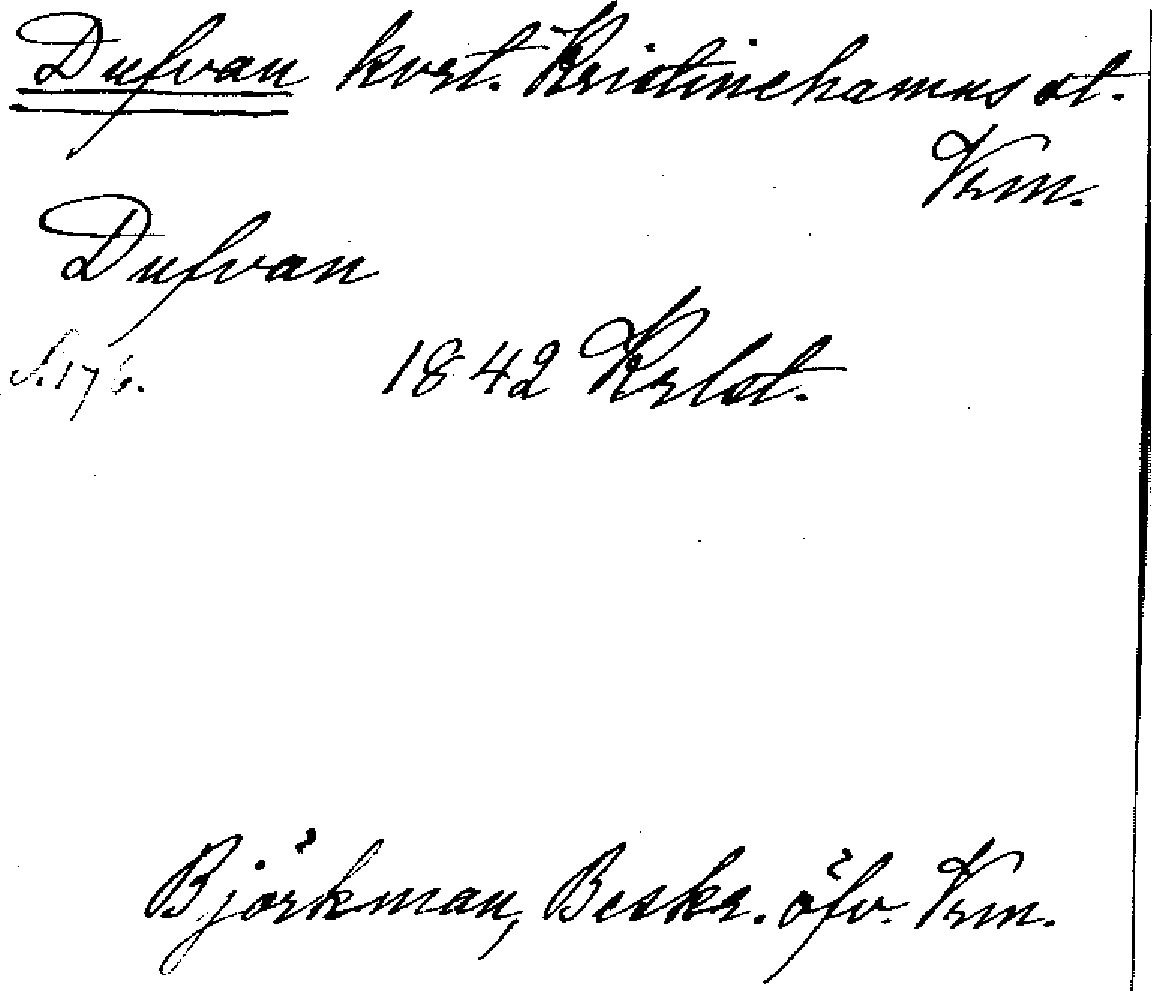 Dufvan kvrt. Kristinehamns st.
Vrm.
Dufvan
S. 176. 1842 Krlst.
Björkman, Beskr. öfv. Vrm.